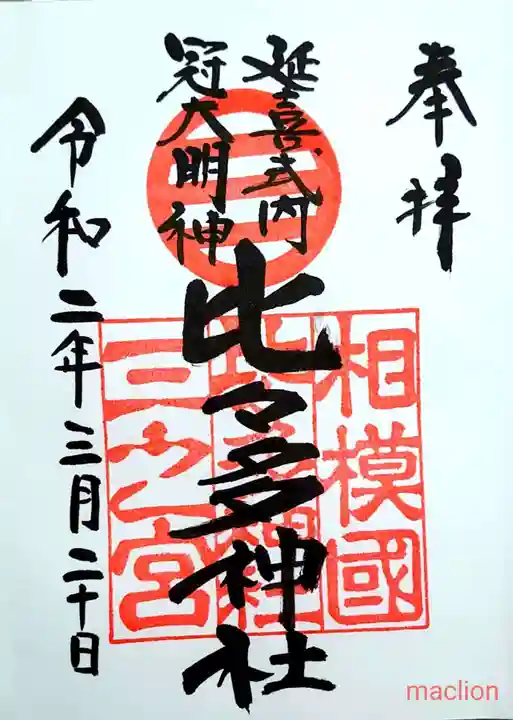 奉拝
延喜式内
冠大明神
比々多神社
相模國
比々多神社
三之宮
令和二年三月二十日
maclion